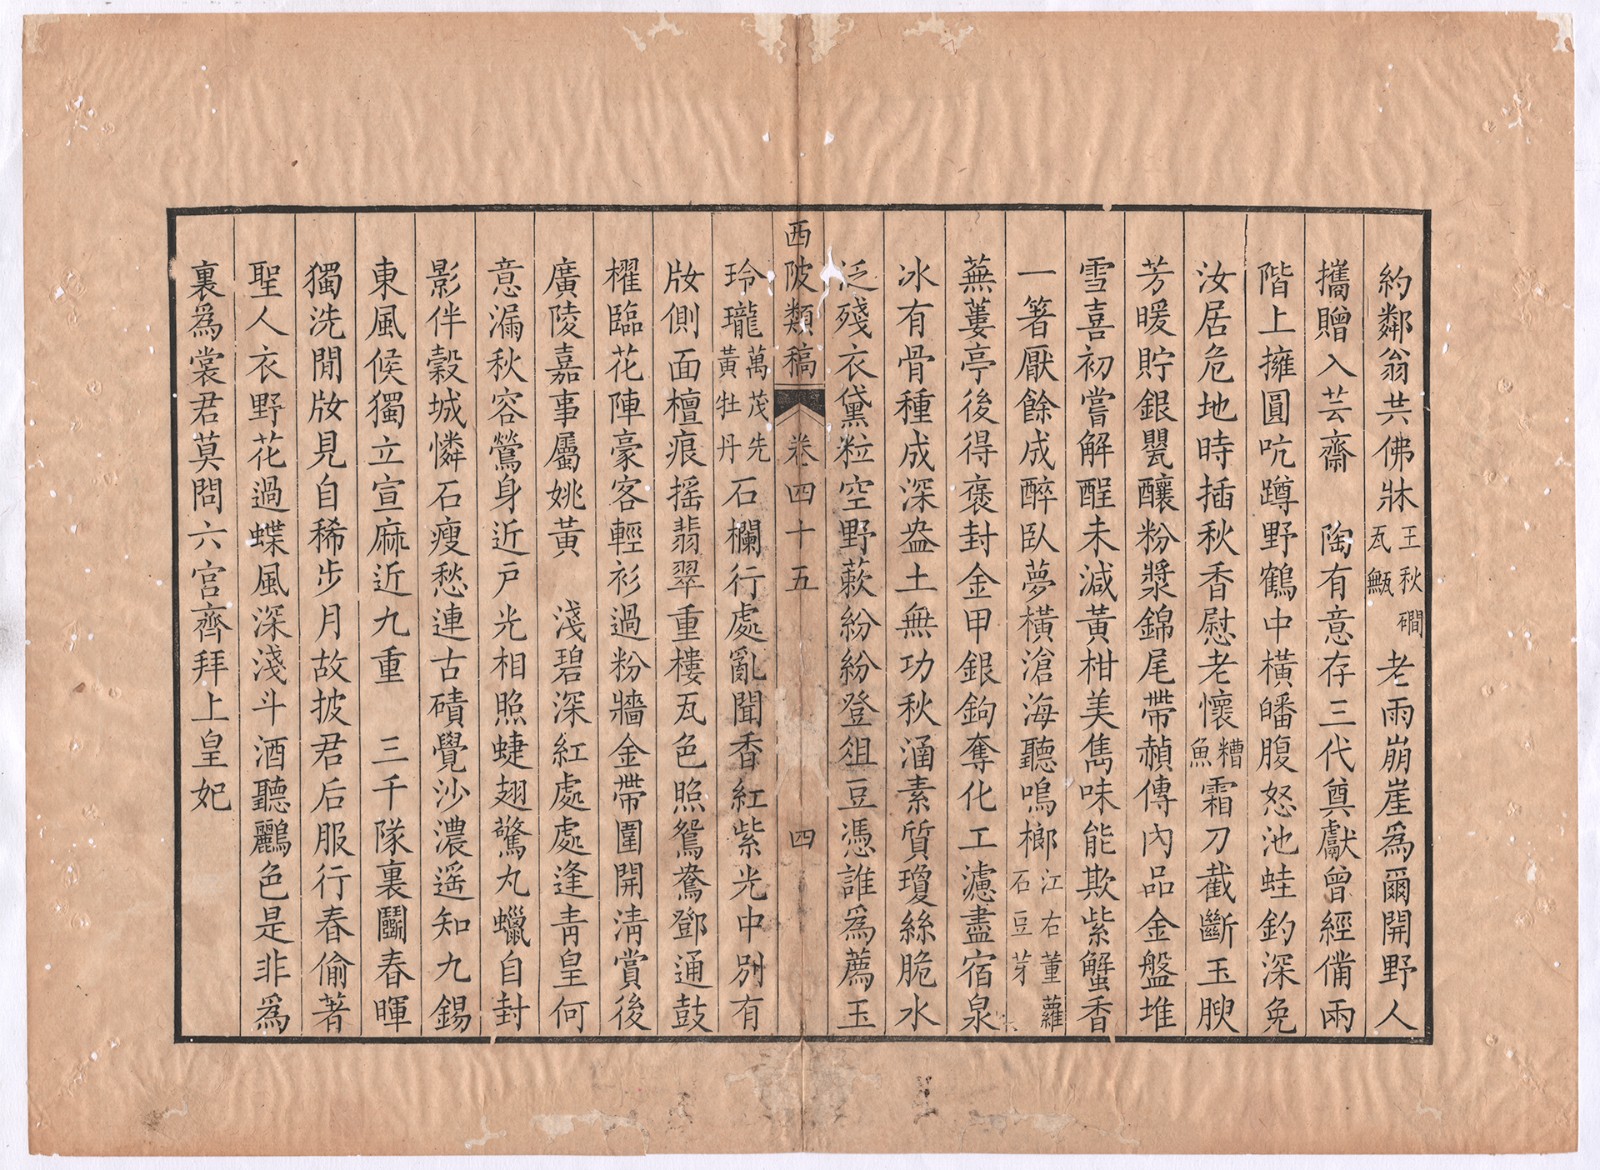 約鄰翁共佛牀王秋磵瓦甗老雨崩崖爲爾開野人
攜贈入芸齋　陶有意存三代奠獻曾經備兩
階上擁圓吭蹲野鶴中橫皤腹怒池蛙釣深免
汝居危地時插秋香慰老懷糟魚霜刀截斷玉腴
芳暖貯銀甖釀粉漿錦尾帶赬傳內品金盤堆
雪喜初嘗解酲未減黃柑美雋味能欺紫蟹香
一箸厭餘成醉臥夢橫滄海聽鳴榔江右董蘿石豆芽
蕪蔞亭後得褒封金甲銀鉤奪化工濾盡宿泉
冰有骨種成深盎土無功秋涵素質瓊絲脆水
泛殘衣黛粒空野蔌紛紛登俎豆憑誰爲薦玉
西陂類稿　卷四十五　四
玲瓏萬茂先黃牡丹石欄行處亂聞香紅紫光中別有
妝側面檀痕搖翡翠重樓瓦色照鴛鴦鄧通鼓
櫂臨花陣豪客輕衫過粉牆金帶圍開清賞後
廣陵嘉事屬姚黃　淺碧深紅處處逢青皇何
意漏秋容鶯身近戶光相照蜨翅驚丸蠟自封
影伴穀城憐石瘦愁連古磧覺沙濃遙知九錫
東風候獨立宣麻近九重　三千隊裏鬭春暉
獨洗閒妝見自稀步月故披君后服行春偷著
聖人衣野花過蝶風深淺斗酒聽鸝色是非爲
裏爲裳君莫問六宮齊拜上皇妃